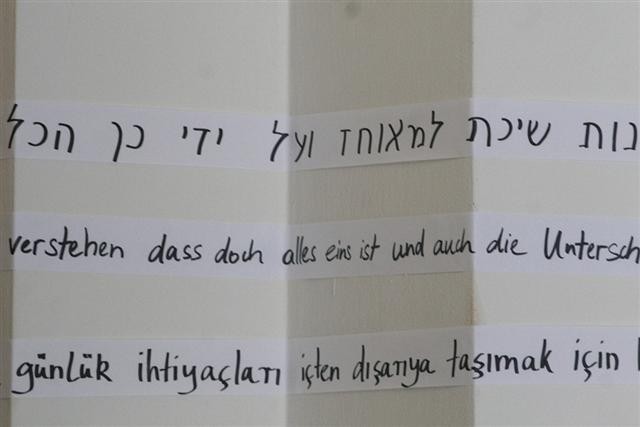 שיכת למאוחד ועל ידי כך הכל
verstehen dass doch alles eins ist und auch die Untersch
günlük ihtiyaçları içten dışarıya taşımak için